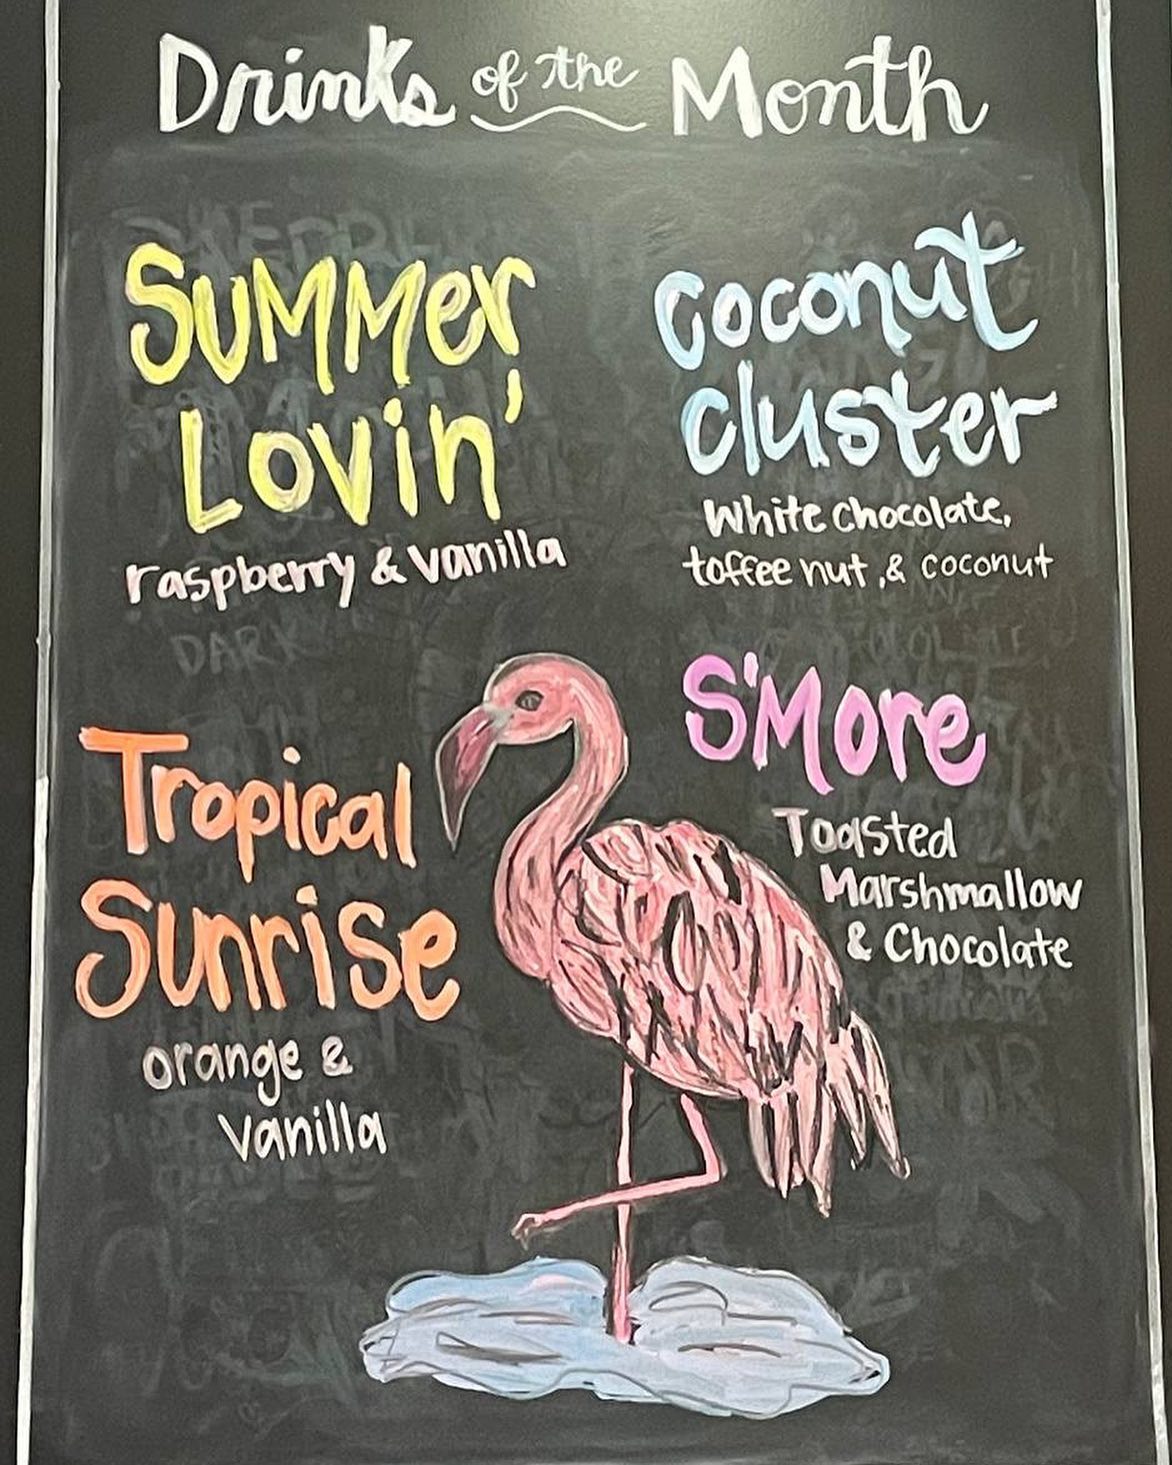 Drinks of the Month
Summer
Lovin'
raspberry & vanilla
coconut
cluster
White chocolate,
toffee nut, & coconut
S'More
Toasted
Marshmallow
& Chocolate
Tropical
Sunrise
orange &
vanilla
DARK